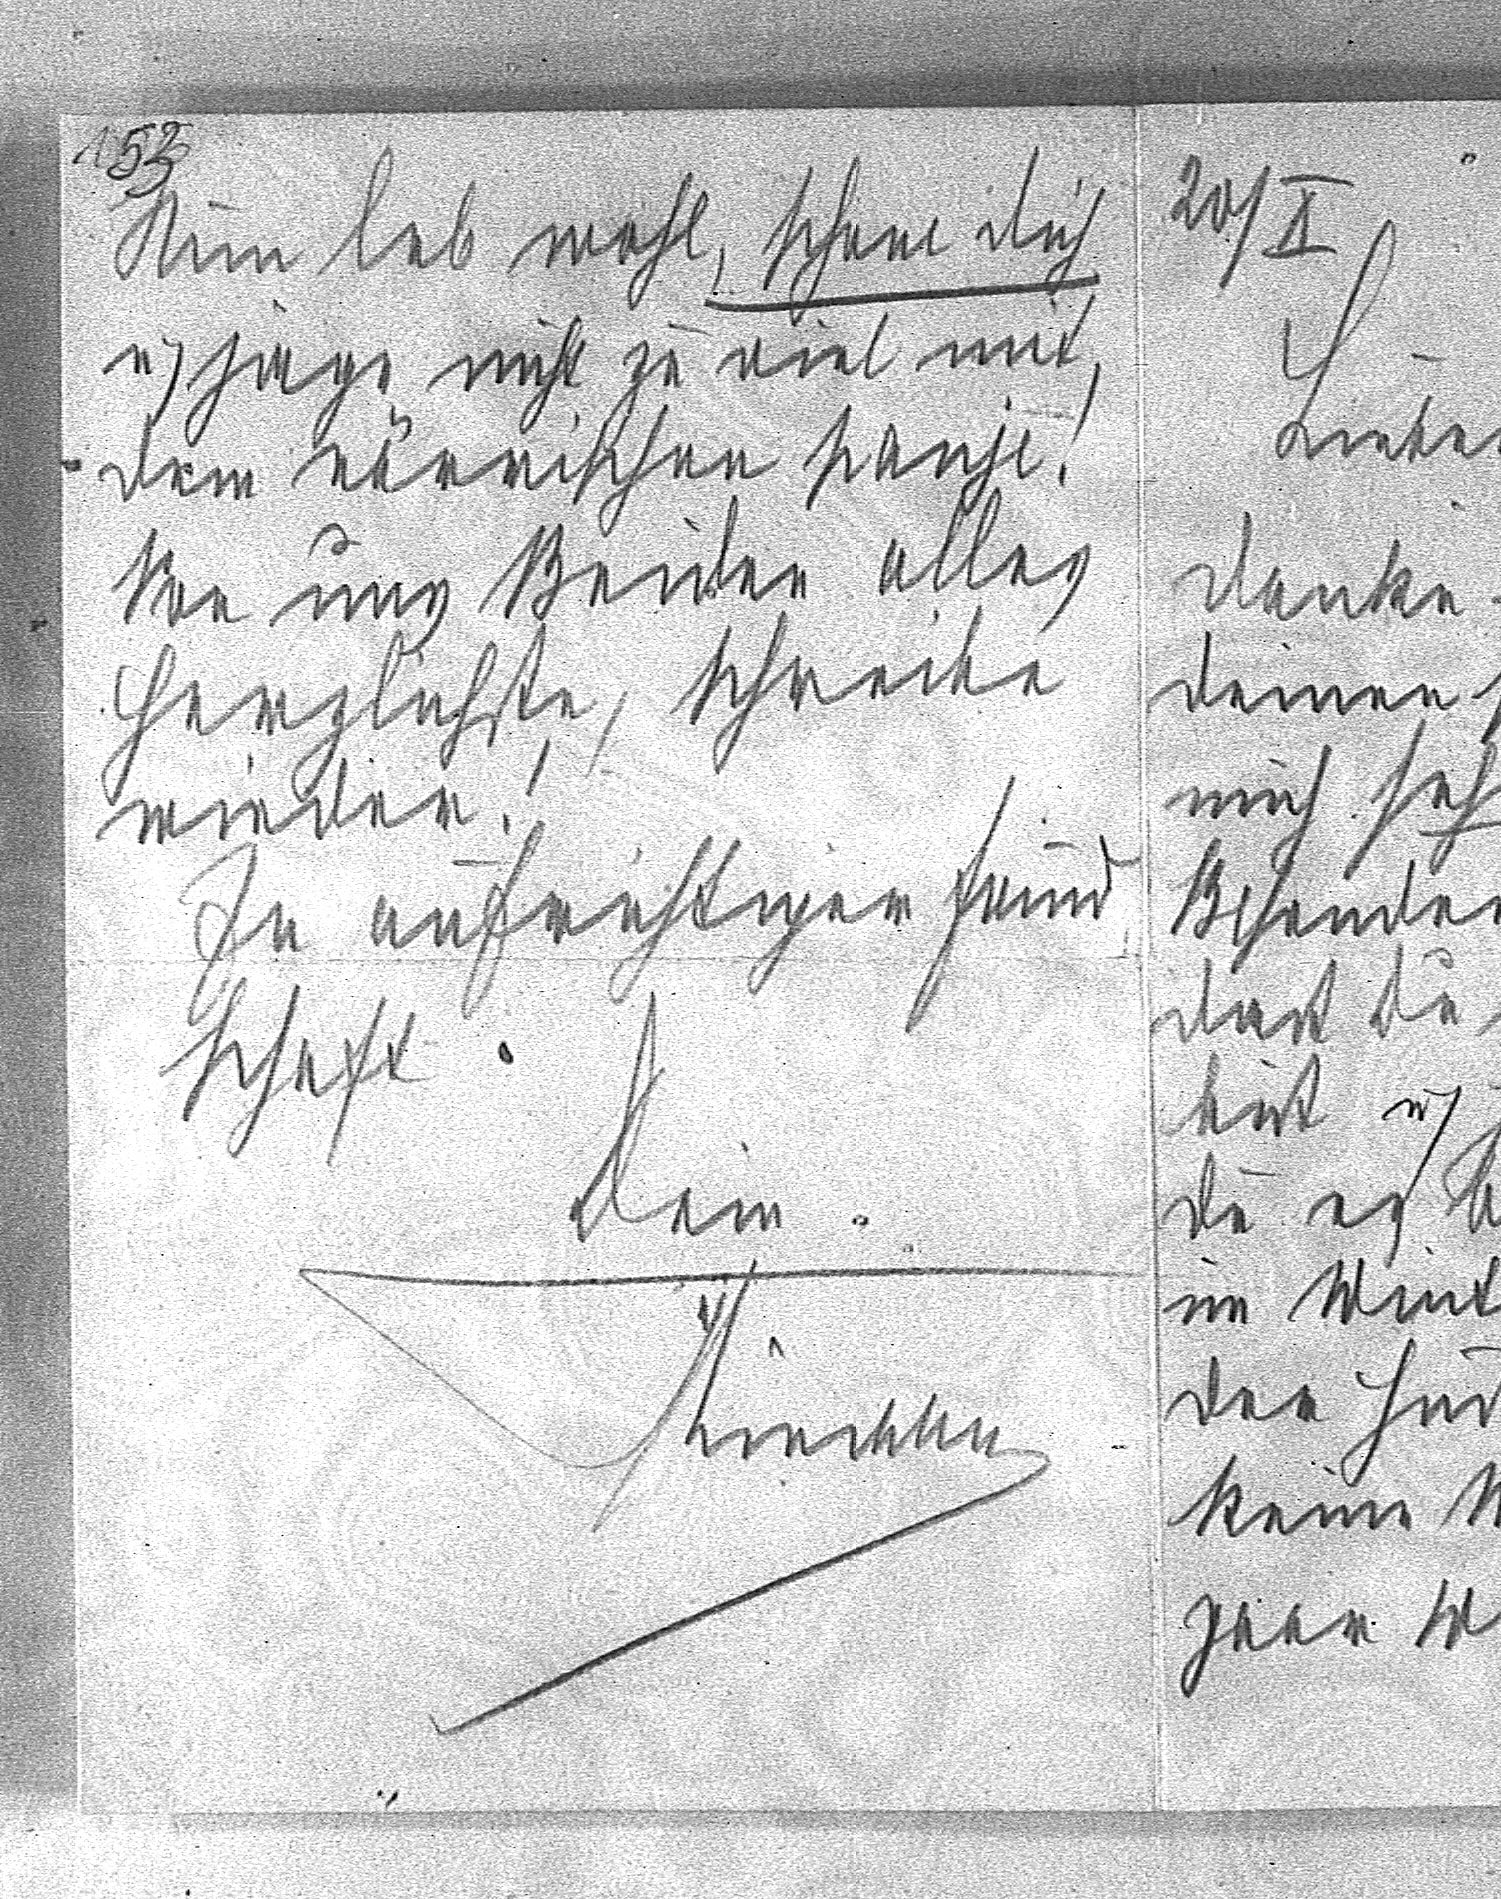 153
Nun leb wohl, schone dich
u. jage nicht zu viel mit
dem närrischen Panje!
Von uns Beiden alles
Herzlichste, schreibe
wieder!
In aufrichtiger Freund
schaft
Dein
20/II
Lieber
danke
deinen
mich seh
dart du
bist u.
du es
im Wint
den
keine